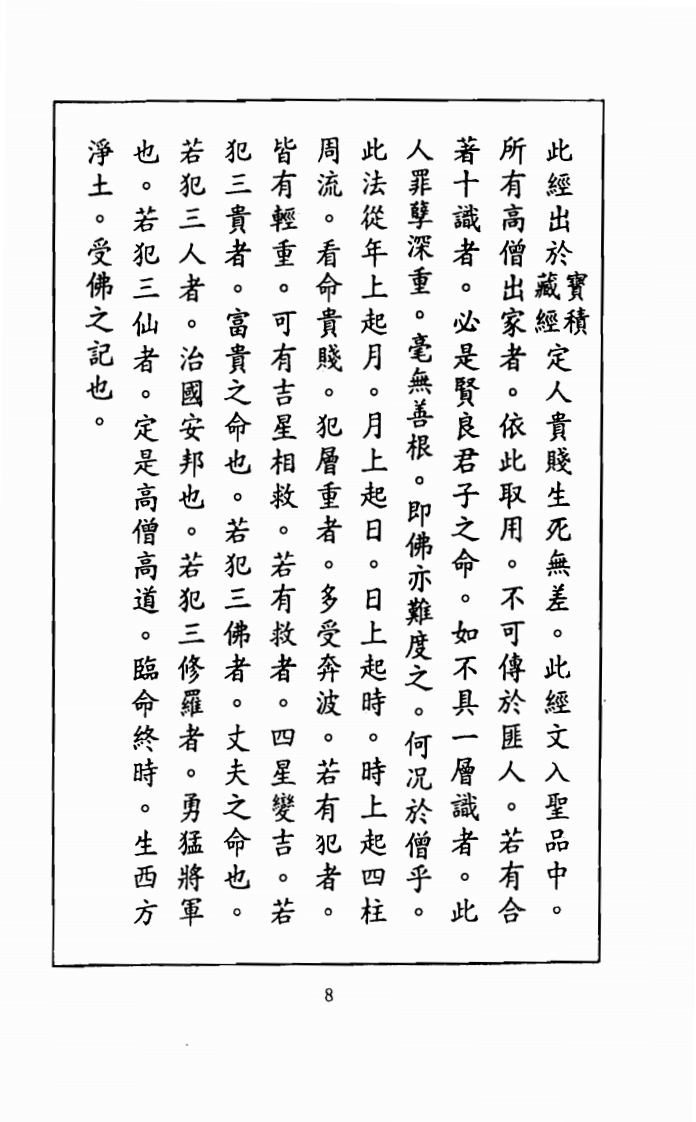 此經出於寶積藏經定人貴賤生死無差。此經文入聖品中。
所有高僧出家者。依此取用。不可傳於匪人。若有合
著十識者。必是賢良君子之命。如不具一層識者。此
人罪孽深重。毫無善根。即佛亦難度之。何況於僧乎。
此法從年上起月。月上起日。日上起時。時上起四柱
周流。看命貴賤。犯層重者。多受奔波。若有犯者。
皆有輕重。可有吉星相救。若有救者。四星變吉。若
犯三貴者。富貴之命也。若犯三佛者。丈夫之命也。
若犯三人者。治國安邦也。若犯三修羅者。勇猛將軍
也。若犯三仙者。定是高僧高道。臨命終時。生西方
淨土。受佛之記也。
8